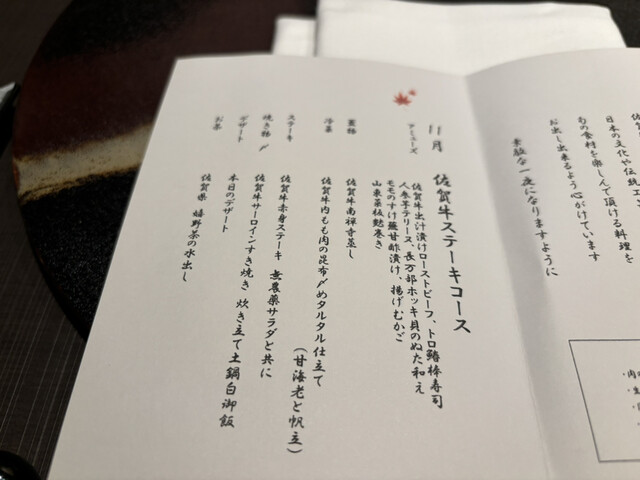 佐
日本の文化や伝統工
旬の食材を楽しんで頂ける料理を
お出し出来るよう心がけています
素敵な一夜になりますように
11月 佐賀牛ステーキコース
アミューズ 佐賀牛出汁漬けローストビーフ、トロ鰆棒寿司
人参芋テリーヌ、長万部ホッキ貝のぬた和え
モモのすけ蕪甘酢漬け、揚げむかご
山東菜板麩巻き
蓋物 佐賀牛南禅寺蒸し
冷菜 佐賀牛内もも肉の昆布〆めタルタル仕立て
(甘海老と帆立)
ステーキ 佐賀牛赤身ステーキ 無農薬サラダと共に
焼き物〆 佐賀牛サーロインすき焼き 炊き立て土鍋白御飯
デザート 本日のデザート
お茶 佐賀県 嬉野茶の水出し
・肉の
・生